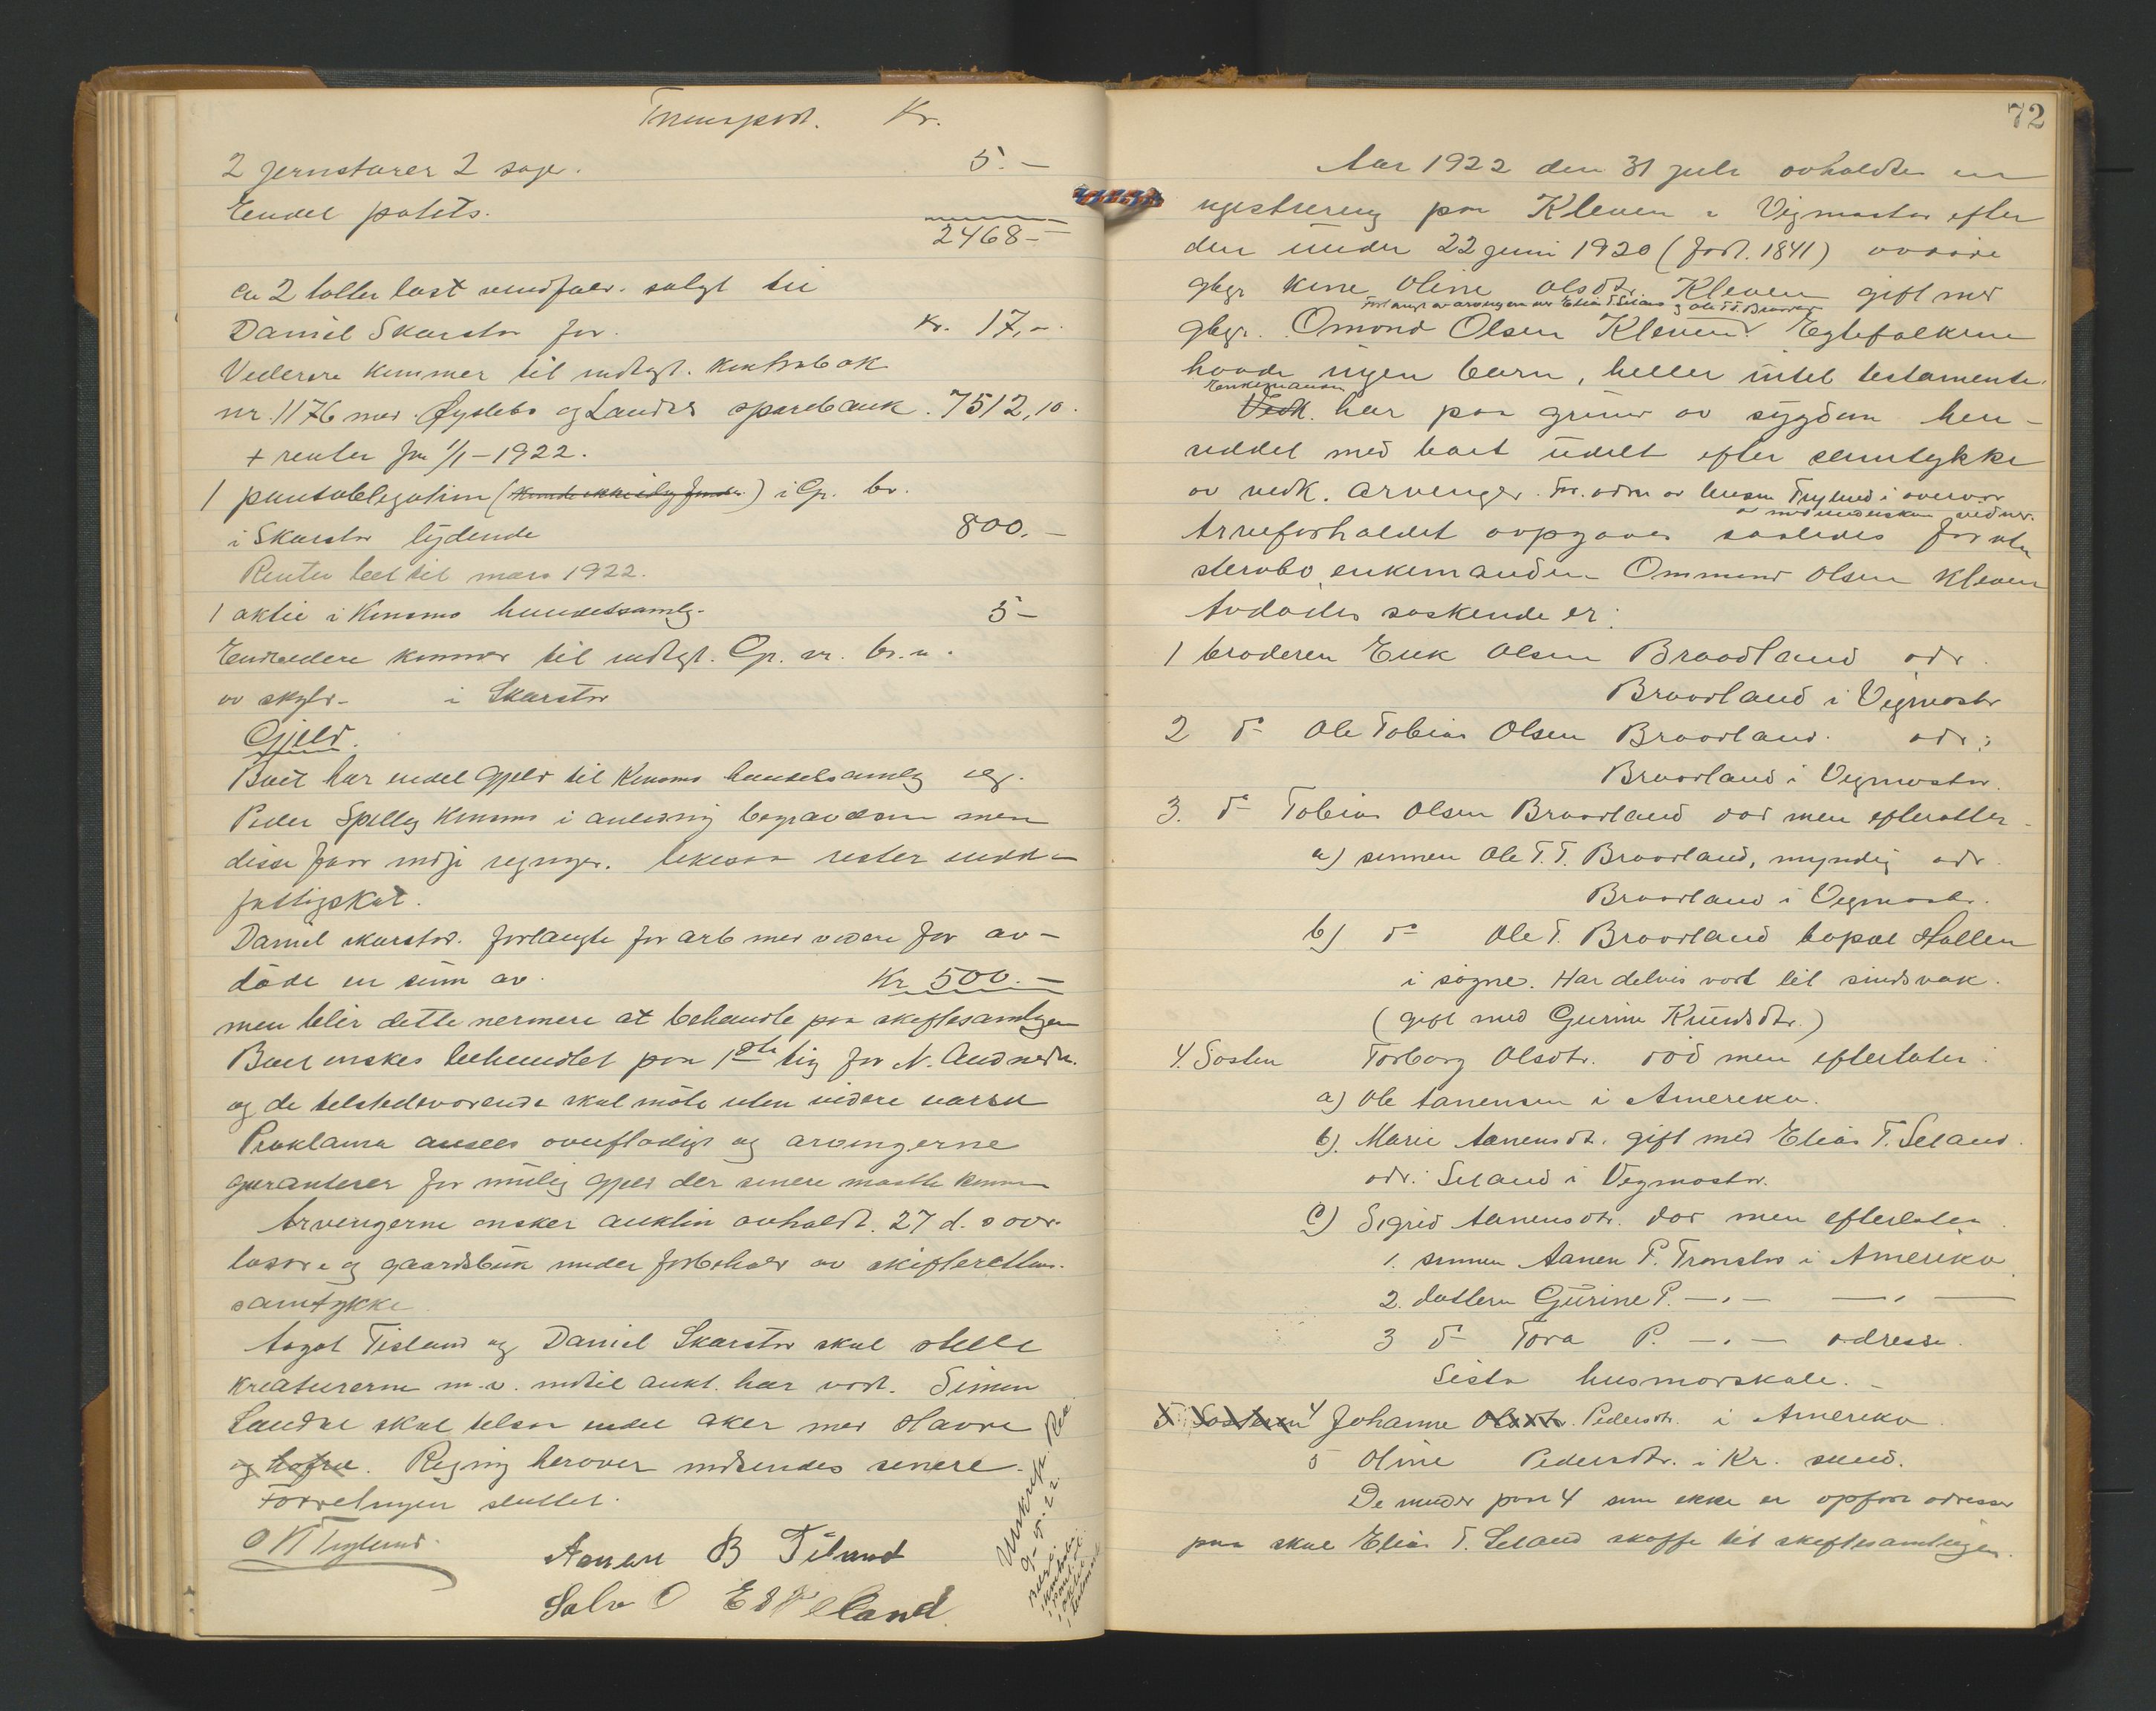 Transport. Kr.
2 jernstarer 2 sage. 5.-
Endel potets.
2468-
ca 2 tolter last vindfald. solgt til
Daniel Skarstør for. Kr. 17,-
Videre kommer til indtægt. Kontrabok
nr. 1176 med Øyslebø og Laudal sparebank. 7512,10.
+ renter fra 1/1-1922.
1 pantobligation () i Gr. br.
i Skarstør lydende 800.-
Renter betalt til mars 1922.
1 aktie i Konsmo handelssamlg. 5-
Endvidere kommer til indtgt. Gr. nr. br. n.
av skyld - i Skarstør
Gjeld.
Boet har endel gjeld til Konsmo handelsamlg og
Peder Spilling Konsmo i anledning begravelsen men
disse faar indgi regninger. likesaa rester
fattigskat.
Daniel skarstør. forlangte for arb med videre for av-
døde en sum av. Kr 500.-
men blir dette nermere at behandle paa skiftesamlingen
Boet ønskes behandlet paa 1ste ting for N. Audnedal.
og de tilstedeværende skal møte uten videre varsel
Proklama ansees overflødigt og arvingerne
garanterer for mulig gjeld der senere maatte komme
Arvingerne ønsker auktion avholdt. 27 d. over
løsøre og gaardsbruk under forbehold av skifterettens
samtykke.
Aagot Tisland og Daniel Skarstør skal stelle
kreaturerne m.v. indtil aukt. har vært. Simon
Laudal skal tilsaa endel aker med Havre
og havre. Regning herover indsendes senere.
Forretningen sluttet.
O N Trylund.
Aanen B Tiland
Salve O Eskeland
Utskreft
9-5-22
72
Aar 1922 den 31 juli avholdtes en
registrering paa Kleven i Vigmostad efter
den under 22 juni 1920 (født. 1841) avdøde
gbgr kone Oline Olsdtr. Kleven gift med
Forlangt av arvingerne ved Elias T. Seland og Ole T.T. Braadland
gbgr. Omond Olsen Kleven. Egtefolkene
havde ingen barn, heller intet testamente.
Enkemanden
Vedk. har paa grund av sygdom hen-
siddet med boet udelt efter samtykke
av vedk. arvinger. For. adm av lensm Trylund i overvær
av undertegnede vidner.
Arveforholdet opgaves saaledes foruten
stervbo enkemanden Ommund Olsen Kleven
Avdødes søskende er:
1 broderen Erik Olsen Braadland adr.
Braadland i Vigmostr
2 do Ole Tobias Olsen Braadland. adr:
Braadland i Vigmostr.
3. do Tobias Olsen Braadland død men efterlater-
a) sønnen Ole T. T. Braadland, myndig adr.
Braadland i Vigmostr.
b) do Ole T. Braadland bopæl Hallen
i søgne. Har delvis vært lit sindsvak.
(gift med Gurine Knudsdtr.)
4. Søsteren Torborg Olsdtr. død men efterlater:
a) Ole Aanensen i Amerika.
b). Marie Aanensdtr. gift med Elias T. Seland.
adr. Seland i Vigmostr.
c) Sigrid Aanensdtr. død men efterlater.
1. sønnen Aanen P. Tronstad i Amerika
2. datteren Gurine P. -"- -"-
3 do Tora P. -"- adresse.
Sista husmorskole.-
5 Søsteren 4 Johanne Olsdtr. Pedersdtr. i Amerika.
5 Oline Pedersdtr. i Kr. sand.
De under post 4 som ikke er opført adresse
paa skal Elias T. Seland skaffe til skiftesamlingen.